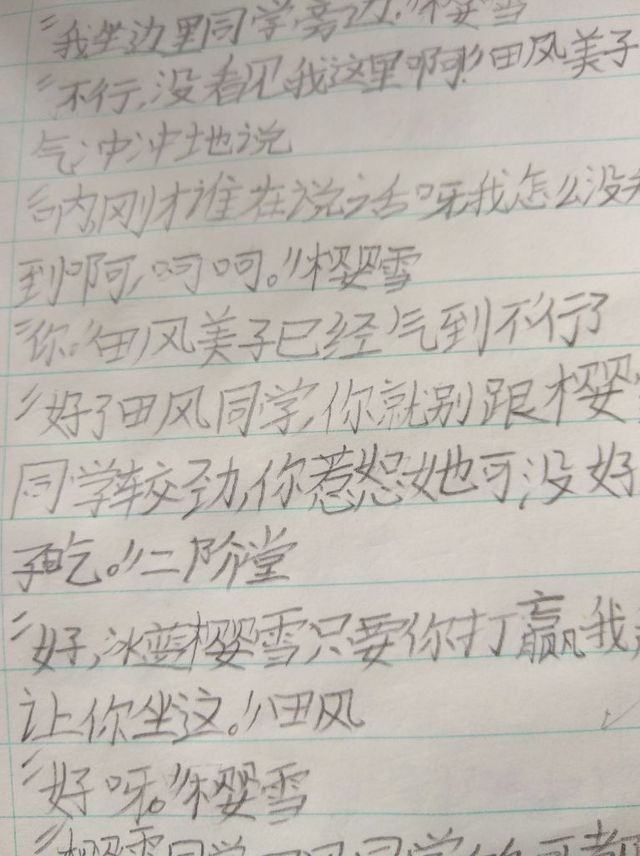 "我坐边里同学旁边."樱雪
"不行,没看见我这里啊!"田风美子
气冲冲地说
"呐,刚才谁在说话呀我怎么没
到啊,呵呵。"樱雪
"你."田风美子已经气到不行了
"好了田风同学,你就别跟樱
同学较劲,你惹怒她可没好
子吃。"二阶堂
"好,冰蓝樱雪只要你打赢我,
让你坐这。"田风
"好呀。"樱雪
"樱雪同学